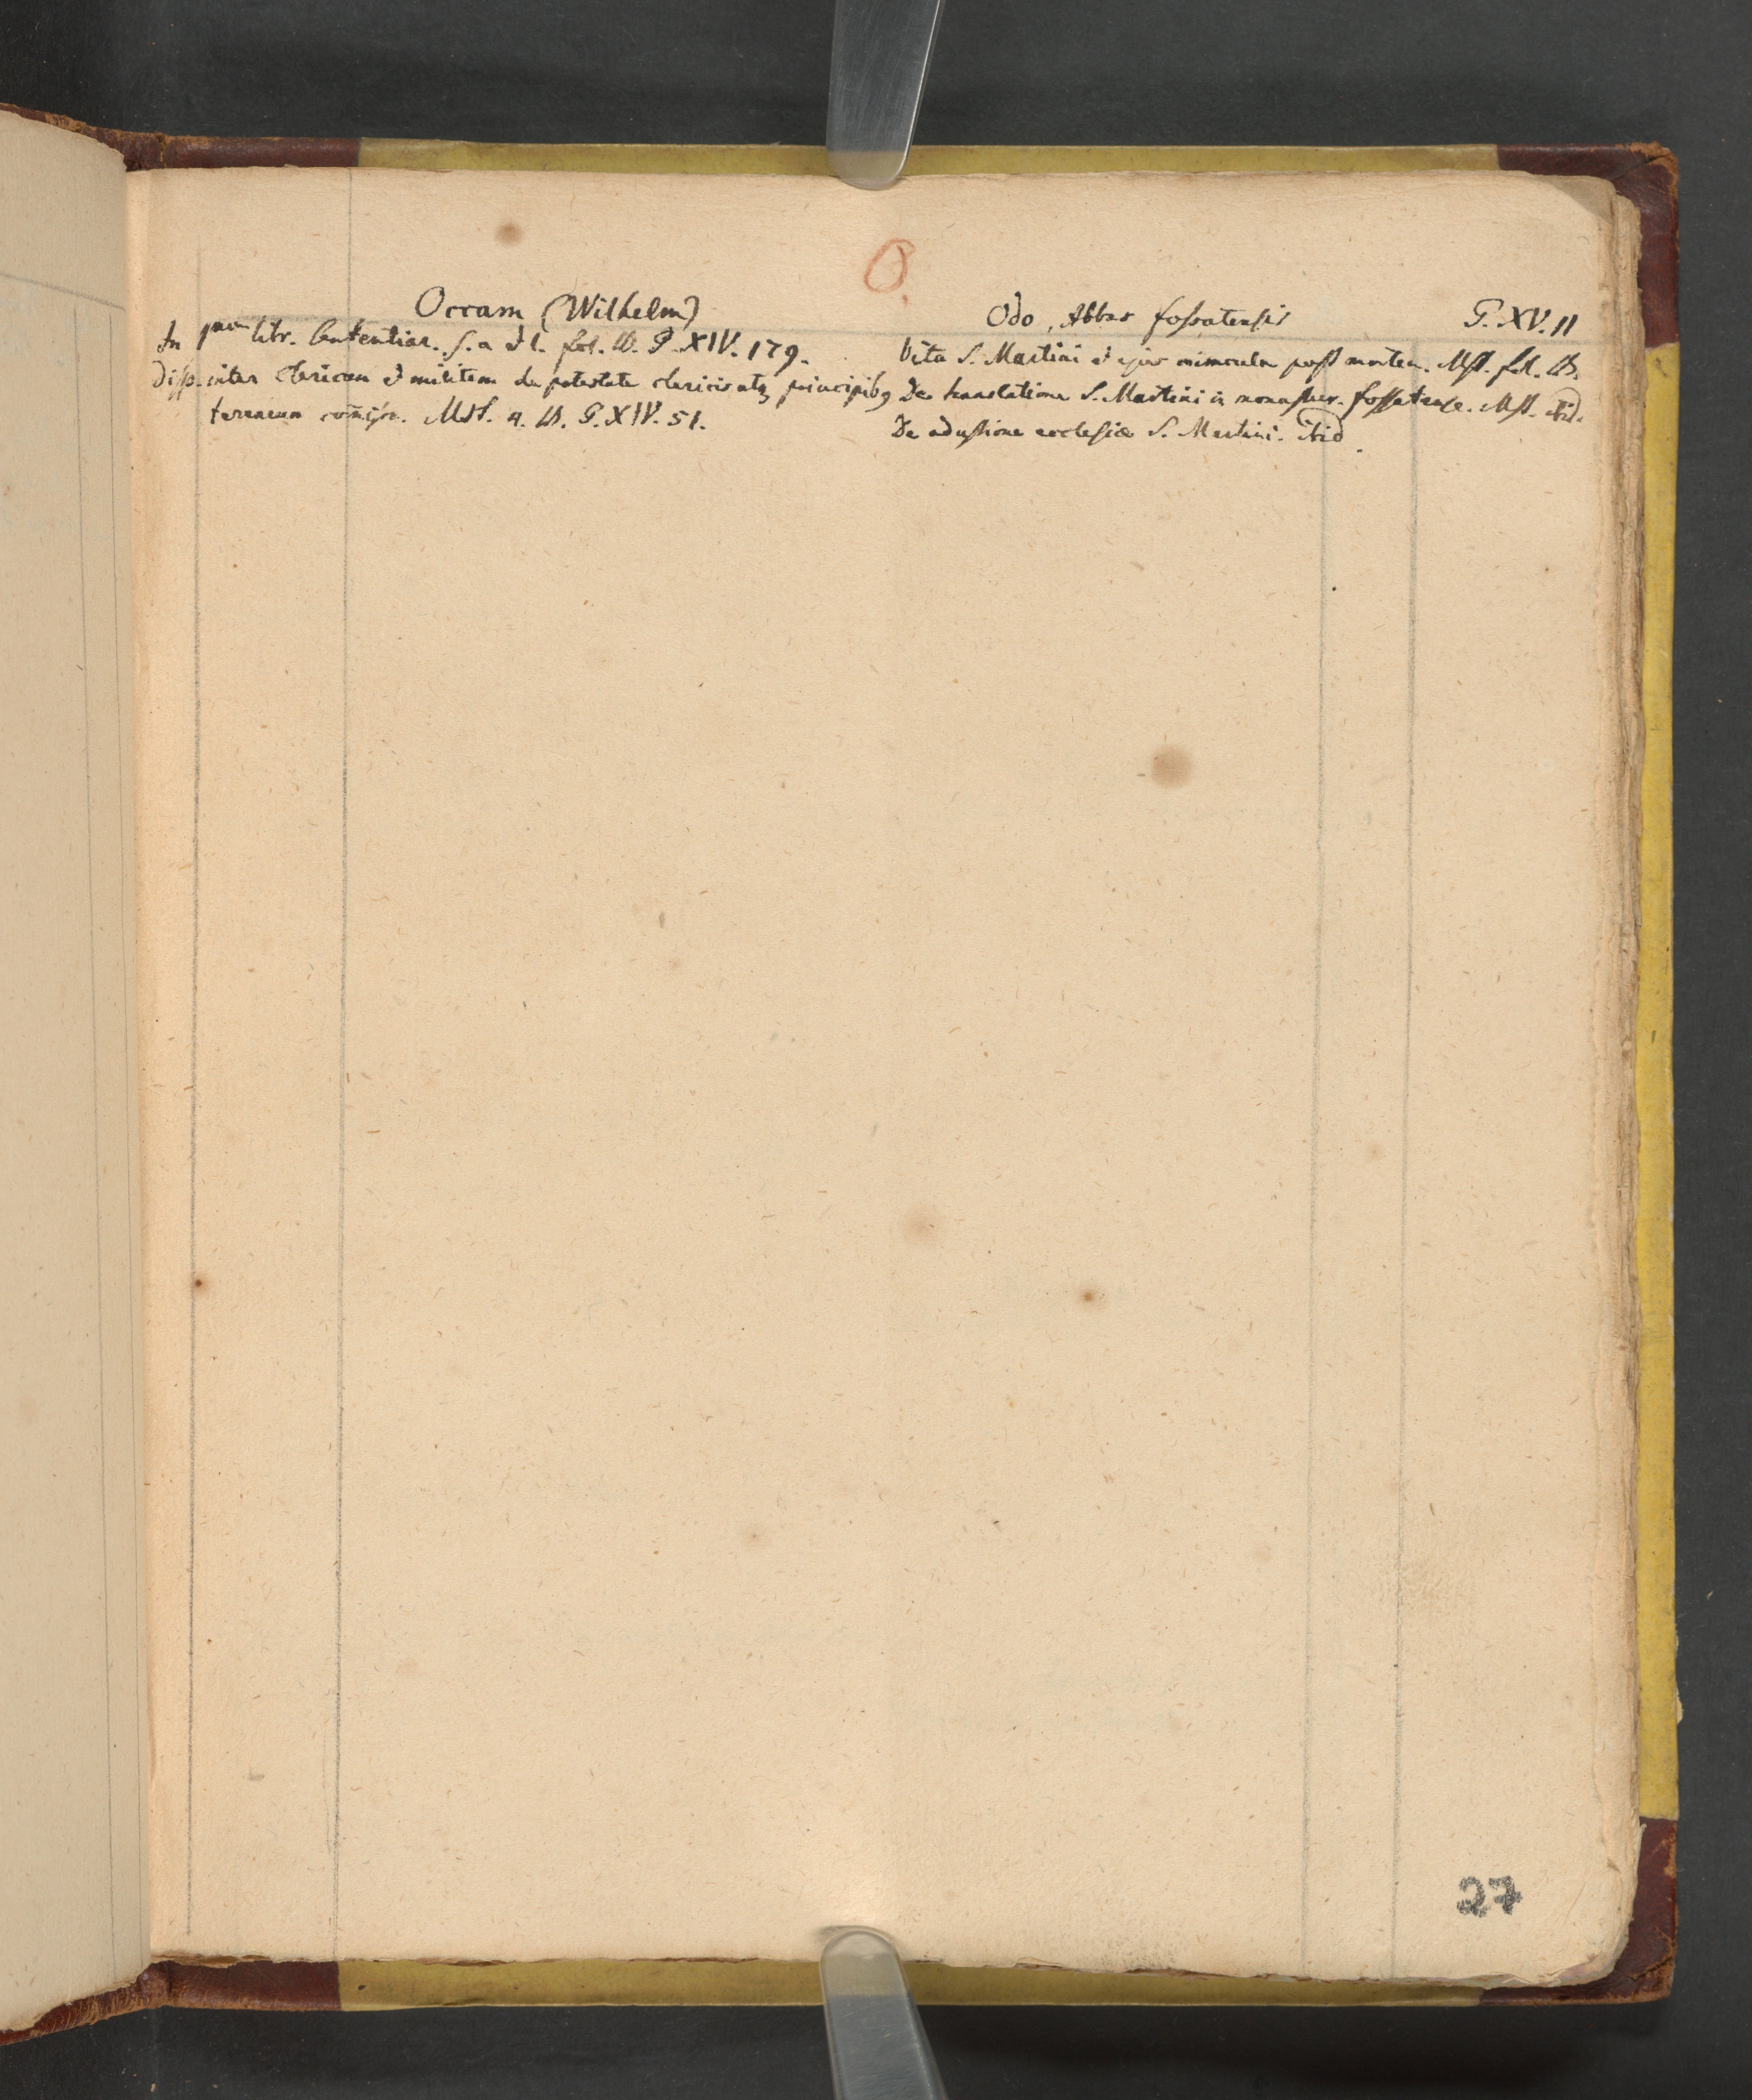 O.
Occam (Wilhelm)
In 1mum libr. Sententiar. S. a et l. fol. W. G. XIV. 179.
Disp. inter clericum et militem de potestate clericis atq principibq
terrarum comissa. Mst. 4. W. G. XIV. 51.
Odo, Abbas fossatensis G. XV. 11
Vita S. Martini et ejus miracula post mortem. Mst. fol. W.
De translatione S. Martini in monaster. fossatense. Mst. ibid.
De adustione ecclesiæ S. Martini. ibid.
27